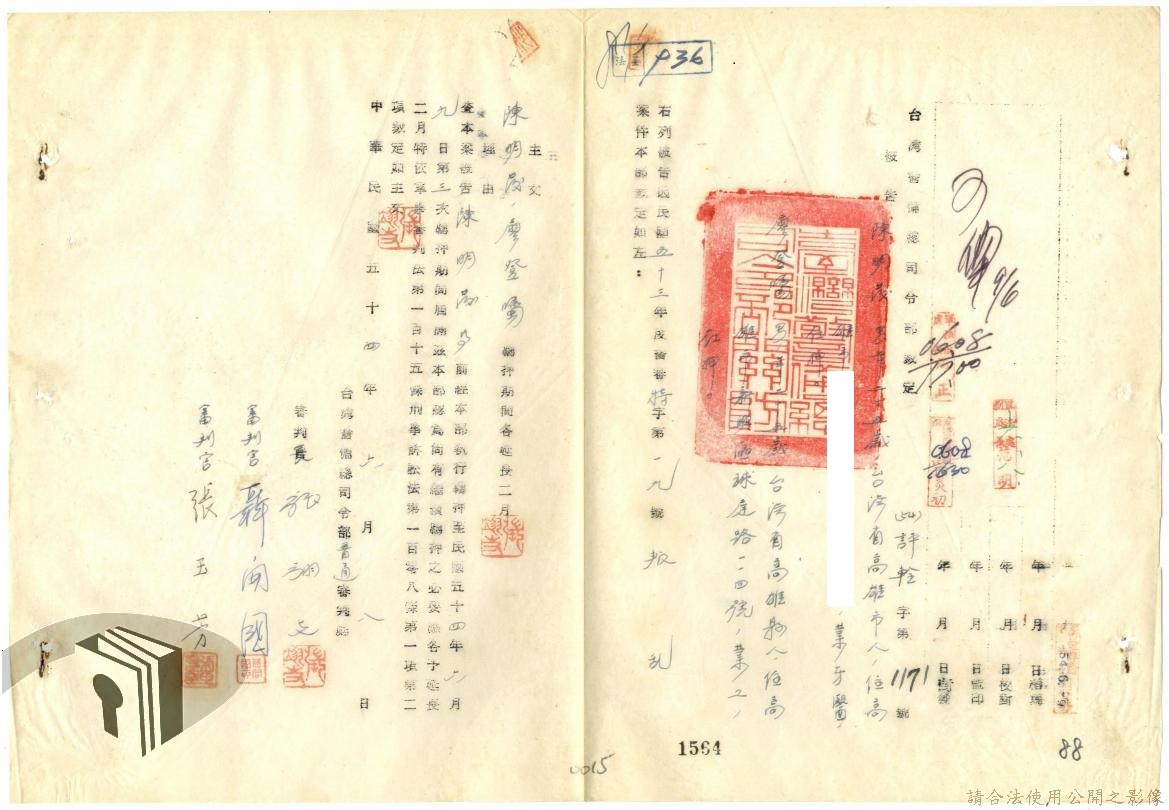 台灣警備總司令部裁定
(54)評幹字第1171號
被告 陳明茂 男年三十四歲，台灣省高雄市人，住高
雄市
，業牙醫，
在押。
男年 歲，台灣省高雄縣人，住高
雄市新興區球庭路一一四號，業工，
在押。
右列被告因民國五十三年度警審特字第一九號叛亂
案件本部裁定如左：
主文
陳明茂、廖登 羈押期間各延長二月
理由
查本案被告陳明茂等前經本部執行羈押至民國五十四年六月
九日第三次羈押期間屆滿茲本部認為尚有繼續羈押之必要應各予延長
二月特依軍事審判法第一百十五條刑事訴訟法第一百零八條第一項第二
項裁定如主文
中華民國五十四年六月八日
台灣警備總司令部普通審判庭
審判長
審判官 聶開國
審判官 張玉芳
936
96
0608
1700
0608
1630
年 月 日
年 月 日校對
年 月 日監印
年 月 日
54.6.-9
1564
0015
88
請合法使用公開之影像